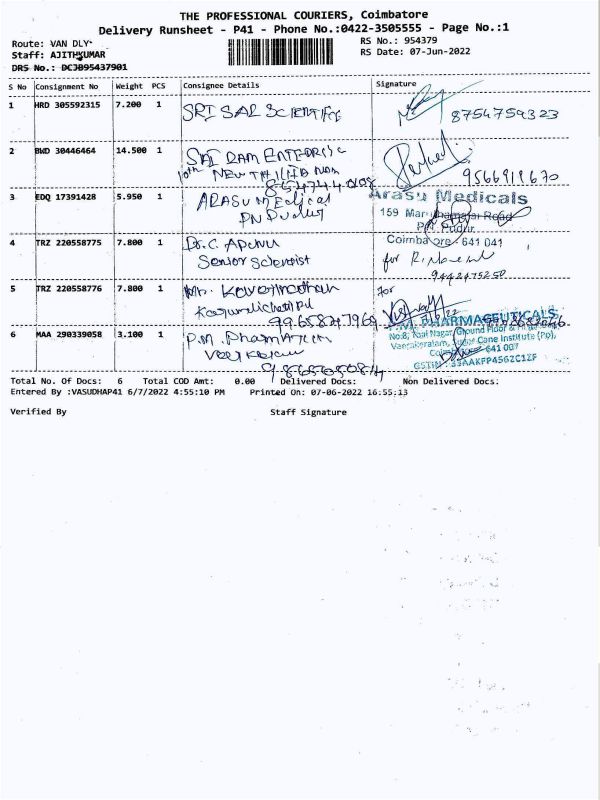 THE PROFESSIONAL COURIERS, Coimbatore
Delivery Runsheet - P41 - Phone No.:0422-3505555 - Page No.:1
Route: VAN DLY
Staff: AJITHKUMAR
DRS No.: DCJB95437901
RS No.: 954379
RS Date: 07-Jun-2022
S No Consignment No Weight PCS Consignee Details Signature
1 HRD 305592315 7.200 1 SRI SAI SCIENTIFIC 8754759323
2 BWD 30446464 14.500 1 SAI RAM ENTERPRISE
10th NEW
9566911670
3 EDQ 17391428 5.950 1 ARASU MEdical
PN Pudur
Arasu Medicals
159 Maruthamalai Road
P.N. Pudur
Coimbatore - 641 041
4 TRZ 220558775 7.800 1 Dr. C. APPUNU
Senior Scientist
for
9442475250
5 TRZ 220558776 7.800 1 Mr.
for
6 MAA 290339058 3.100 1 P.M. PharmA
PHARMACEUTICALS
No:8, Rajaji Nagar, Ground Floor &
Veerakeralam, Sugar Cane Institute (Po),
Coimbatore - 641 007
GSTIN : 33AAKFP4562C1ZF
Total No. Of Docs: 6 Total COD Amt: 0.00 Delivered Docs: Non Delivered Docs:
Entered By :VASUDHAP41 6/7/2022 4:55:10 PM Printed On: 07-06-2022 16:55:13
Verified By Staff Signature